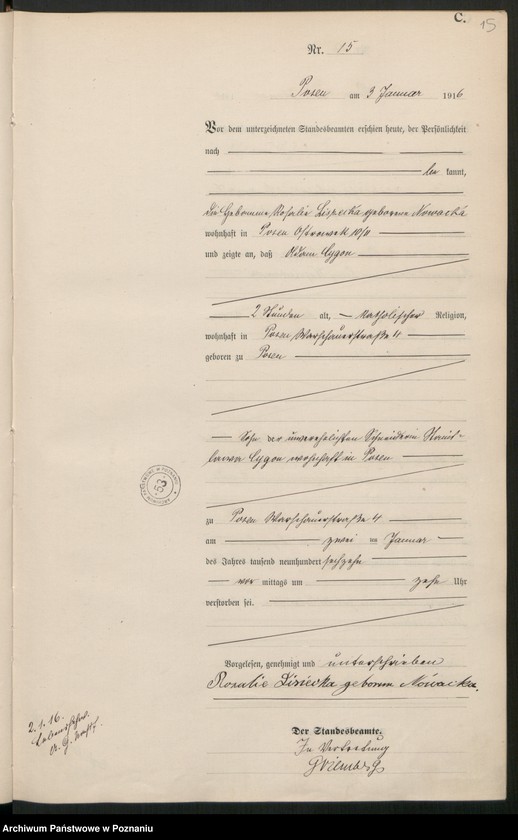 C.
15
Nr. 15
Posen am 3 Januar 1916
Vor dem unterzeichneten Standesbeamten erschien heute, der Persönlichkeit
nach
kannt,
die Hebamme Rosalie Lisiecka geborene Nowacka
wohnhaft in Posen Ostrowek 10/11
und zeigte an, daß Adam Cygon
2 Stunden alt, katholischer Religion,
wohnhaft in Posen Warschauerstraße 4
geboren zu Posen
Sohn der unverehelichten Schneiderin Stanis-
lawa Cygon wohnhaft in Posen
zu Posen Warschauerstraße 4
am zwei ten Januar
des Jahres tausend neunhundert sechzehn
vor mittags um zehn Uhr
verstorben sei.
Vorgelesen, genehmigt und unterschrieben
Rozalie Lisiecka geborene Nowacka.
Der Standesbeamte.
In Vertretung
2.1.16.
53
Archiwum Państwowe w Poznaniu